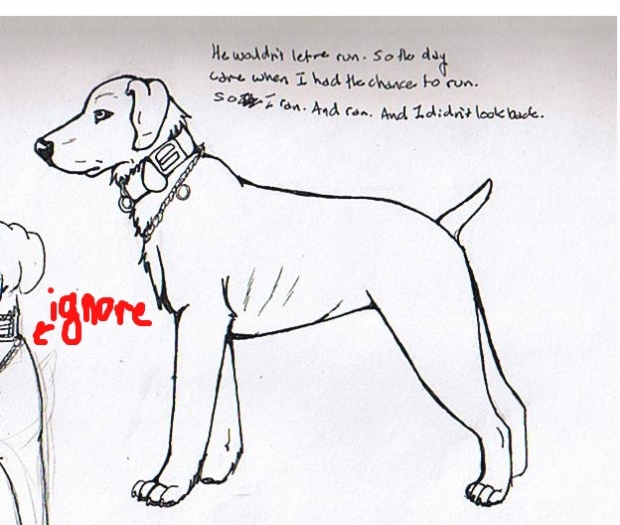 He wouldn't let me run. So the day
came when I had the chance to run.
So I ran. And ran. And I didn't look back.
ignore